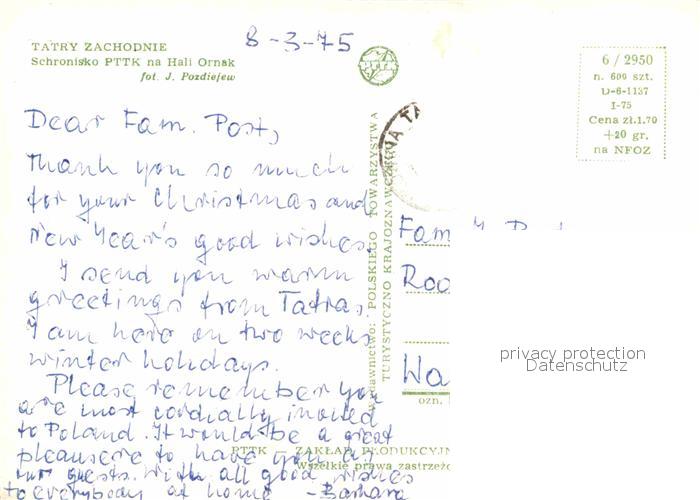 8-3-75
TATRY ZACHODNIE
Schronisko PTTK na Hali Ornak
fot. J. Pozdiejew
PTTK
6 / 2950
n. 600 szt.
U-6-1137
I-75
Cena zł. 1.70
+20 gr.
na NFOZ
Dear Fam. Post,
Thank you so much
for your Christmas and
New Year's good wishes.
I send you warm
greetings from Tatras.
I am here on two weeks
winter holidays.
Please remember you
are most cordially invited
to Poland. It would be a great
pleansere to have you as
our guests. With all good wishes
to everybody at home - Barbara
Wydawnictwo: POLSKIEGO TOWARZYSTWA
TURYSTYCZNO KRAJOZNAWCZEGO
Fam
Roo
Wa
ozn.
PTTK — ZAKŁAD PRODUKCYJN
Wszelkie prawa zastrzeżo
privacy protection
Datenschutz